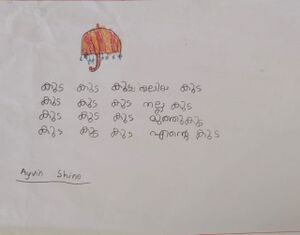 കുട കുട കുട വലിയ കുട
കുട കുട കുട നല്ല കുട
കുട കുട കുട മുത്തുകുട
കുട കുട കുട എന്റെ കുട
Ayvin Shine